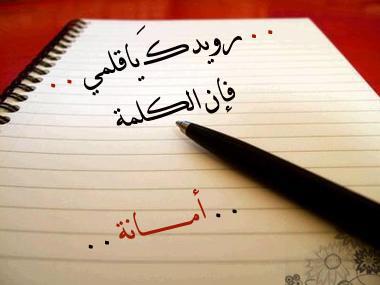 .. رويدك يَا قلمي ..
فإن الكلمة
.. أمــانة ..